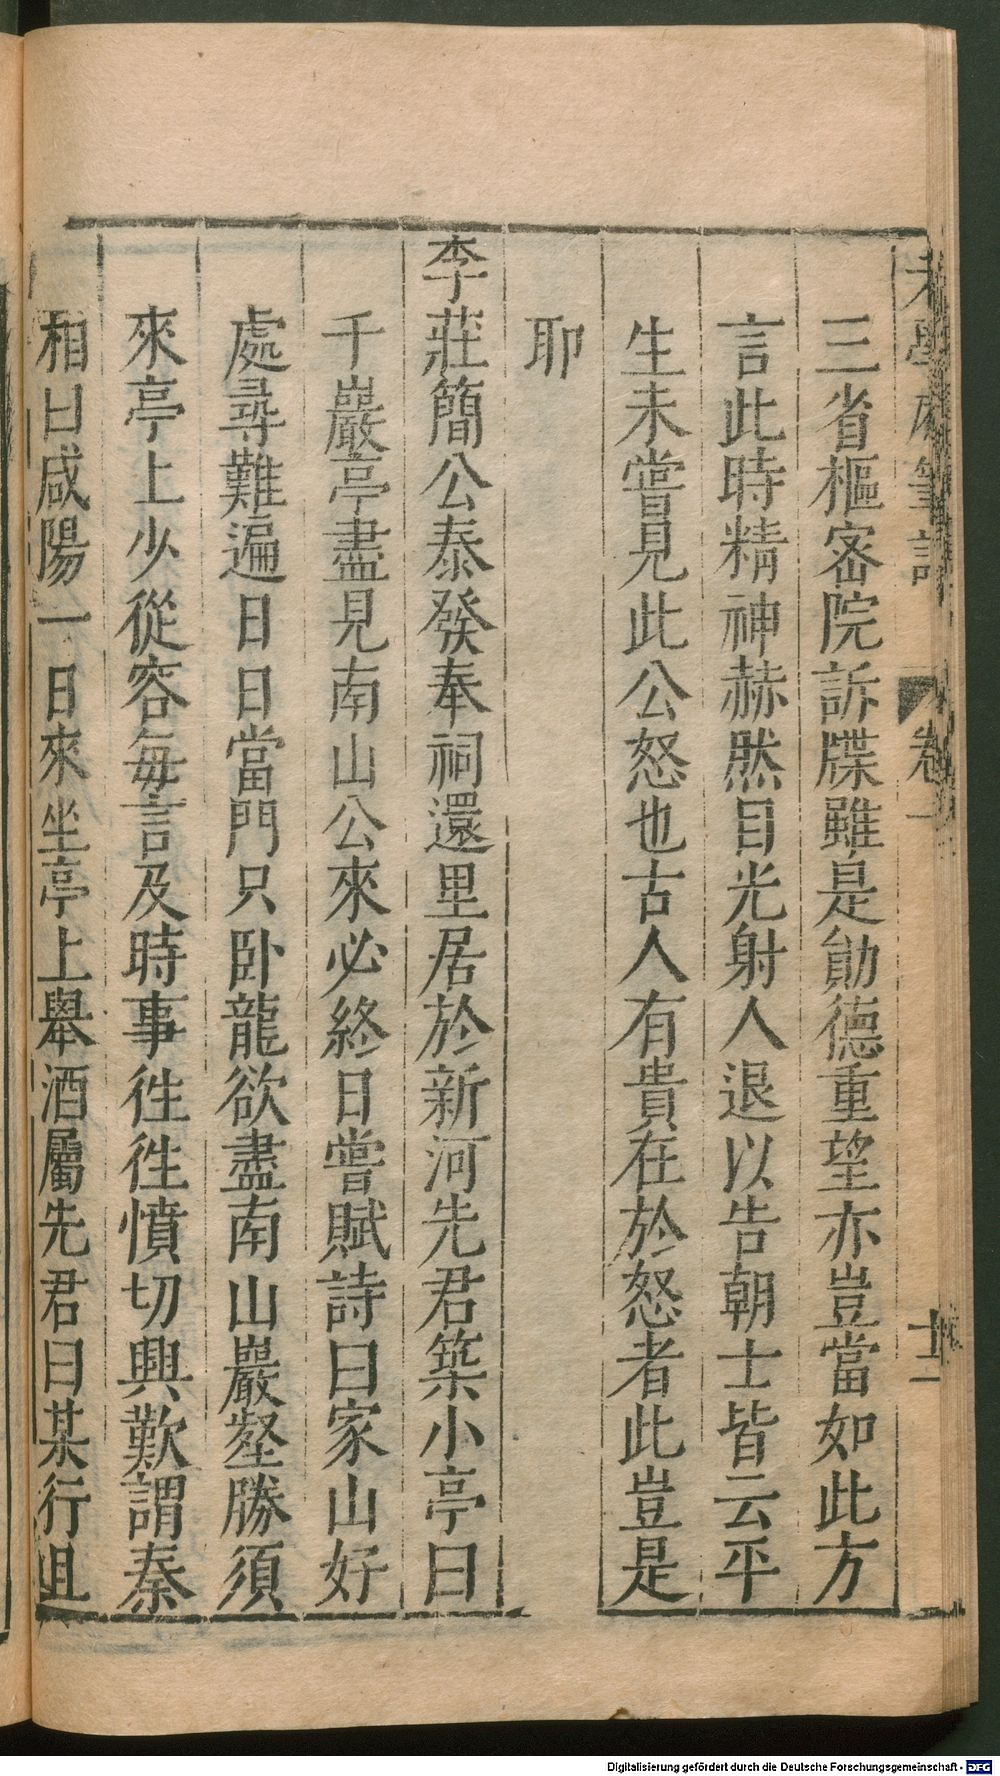 老學庵筆記 卷一 十二
三省樞密院訴牒雖是勛德重望亦豈當如此方
言此時精神赫然目光射人退以告朝士皆云平
生未嘗見此公怒也古人有貴在於怒者此豈是
耶
李莊簡公泰發奉祠還里居於新河先君築小亭曰
千巖亭盡見南山公來必終日嘗賦詩曰家山好
處尋難遍日日當門只臥龍欲盡南山巖壑勝須
來亭上少從容每言及時事徃徃憤切興歎謂秦
相曰咸陽一日來坐亭上舉酒屬先君曰某行且
Digitalisierung gefördert durch die Deutsche Forschungsgemeinschaft - DFG